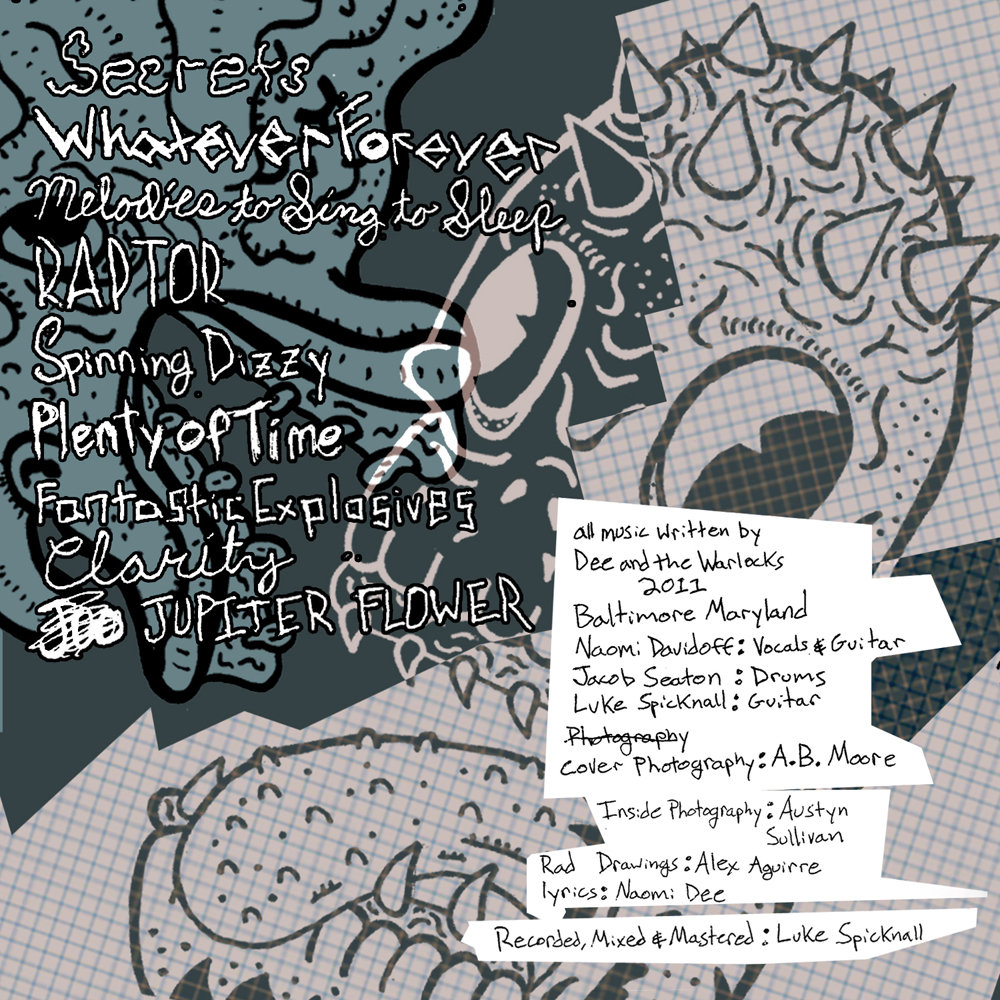 Secrets
Whatever Forever
Melodies to Sing to Sleep
RAPTOR
Spinning Dizzy
Plenty of Time
Fantastic Explosives
Clarity
JUPITER FLOWER
all music written by
Dee and the Warlocks
2011
Baltimore Maryland
Naomi Davidoff: Vocals & Guitar
Jacob Seaton : Drums
Luke Spicknall: Guitar
Photography
Cover Photography: A.B. Moore
Inside Photography: Austyn
Sullivan
Rad Drawings: Alex Aguirre
lyrics: Naomi Dee
Recorded, Mixed & Mastered: Luke Spicknall